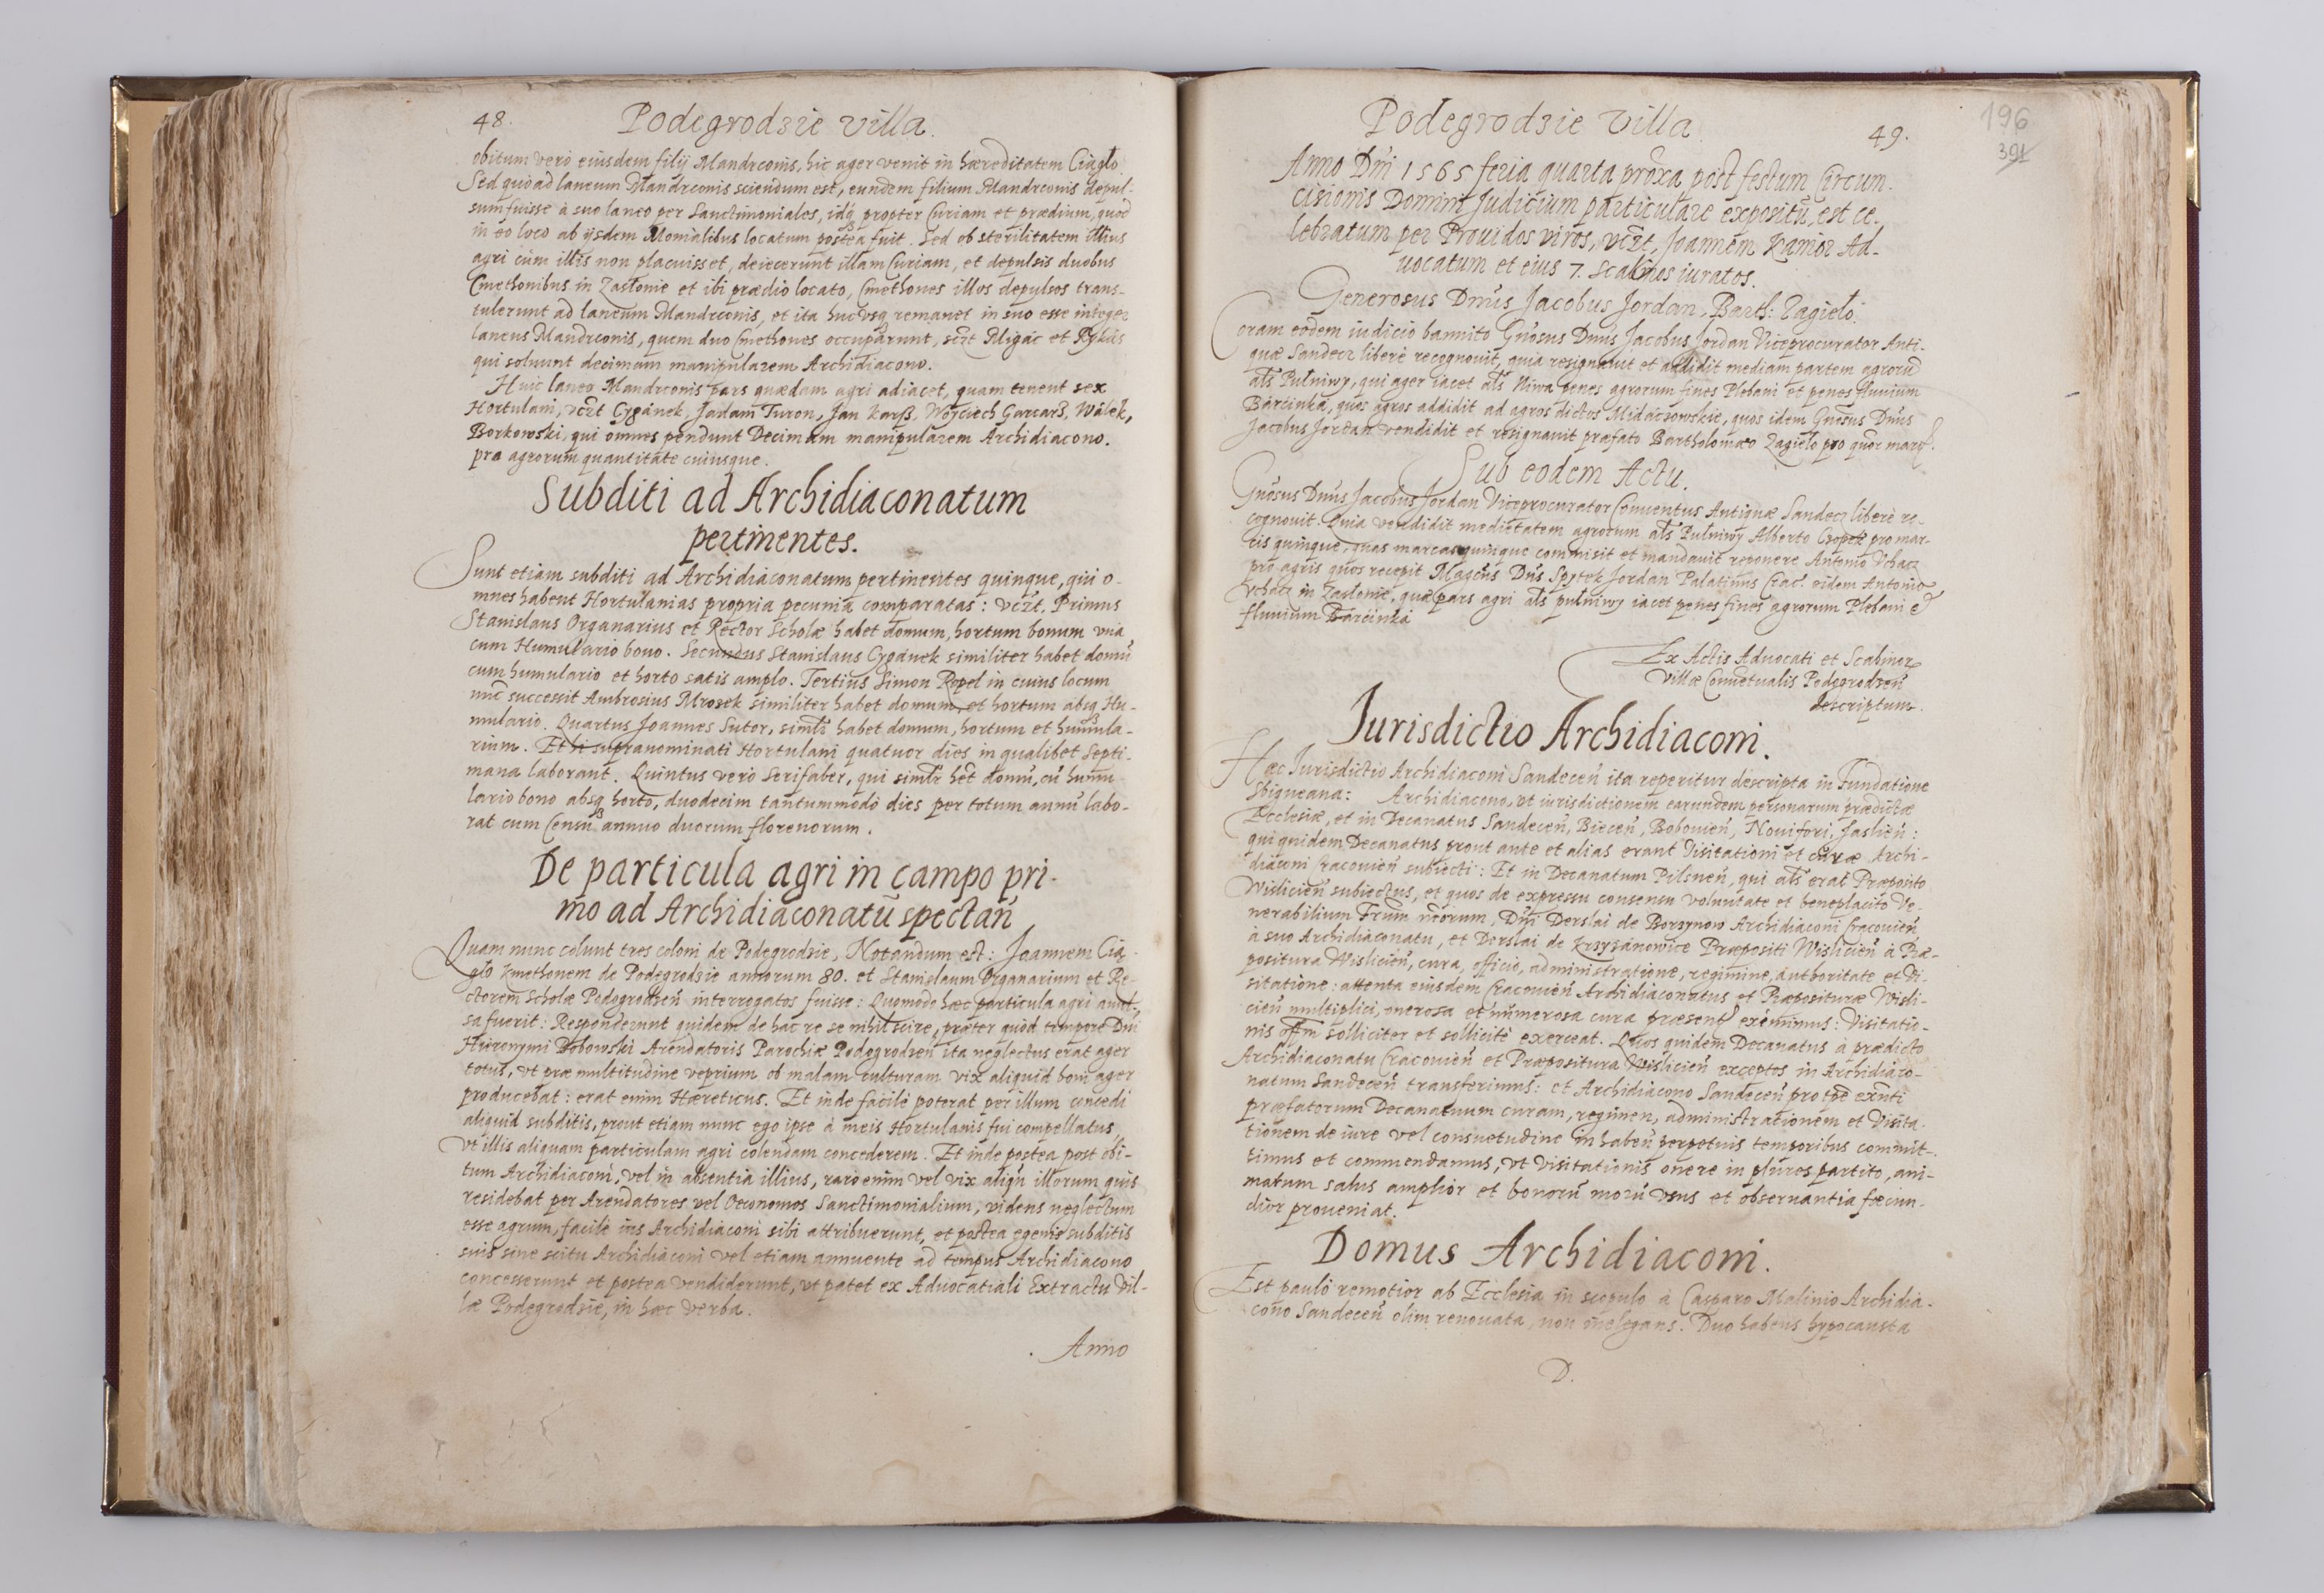 48.
Podegrodzie villa.
obitum verò eiusdem filij Mandrconis, hic ager venit in hæreditatem Ciągło.
Sed quoad laneum Mandrconis sciendum est, eundem filium Mandrconis depul-
sum fuisse à suo laneo per Sanctimoniales, idq́ propter Curiam et prædium, quod
in eo loco ab ijsdem Monialibus locatum postea fuit. Sed ob sterilitatem illius
agri cùm illis non placuisset, deiecerunt illam Curiam, et depulsis duobus
Cmethonibus in Zasłonie et ibi prædio locato, Cmethones illos depulsos trans-
tulerunt ad laneum Mandrconis, et ita hucusq́ remanet in suo esse integer
laneus Mandrconis, quem duo Cmethones occupârunt, sczt Migac et Rykas
qui soluunt decimam manipularem Archidiacono.
Huic laneo Mandrconis pars quædam agri adiacet, quam tenent sex
Hortulani, vczt Cygánek, Jadam Turon, Jan Karpß, Woyciech Garcarß, Wálek,
Borkowski, qui omnes pendunt Decimam manipularem Archidiacono.
pro agrorum quantitate cuiusque.
Subditi ad Archidiaconatum
pertinentes.
Sunt etiam subditi ad Archidiaconatum pertinentes quinque, qui o-
mnes habent Hortulanias propria pecunia comparatas: vczt. Primus
Stanislaus Organarius et Rector Scholæ habet domum, hortum bonum vnà
cum Humulario bono. Secundus Stanislaus Cygánek similiter habet domũ
cum humulario et horto satis amplo. Tertius Simon Ropel in cuius locum
nũc successit Ambrosius Mrozek similiter habet domum et hortum absq́ Hu-
mulario. Quartus Joannes Sutor, similr habet domum, hortum et humula-
rium. Et hi supranominati Hortulani quatuor dies in qualibet Septi-
mana laborant. Quintus verò Serifaber, qui similr het domũ, cũ humu
lario bono absq́ horto, duodecim tantummodò dies per totum annũ labo-
rat cum Censu annuo duorum florenorum.
De particula agri in campo pri-
mo ad Archidiaconatũ spectan̄
Quam nunc colunt tres coloni de Podegrodzie, Notandum est: Joannem Cią-
gło Kmethonem de Podegrodzie annorum 80. et Stanislaum Organarium et Re-
ctorem Scholæ Podegrodzen̄ interrogatos fuisse: Quomodo hæc particula agri amis-
sa fuerit: Responderunt quidem de hac re se nihil scire, præter quòd tempore Dñi
Hieronymi Bobowski Arendatoris Parochiæ Podegrodzen̄ ita neglectus erat ager
totus, vt præ multitudine veprium ob malam culturam vix aliquid boni ager
producebat: erat enim Hæreticus. Et inde facilè poterat per illum concedi
aliquid subditis, prout etiam nunc ego ipse à meis Hortulanis fui compellatus,
Vt illis aliquam particulam agri colendam concederem. Et inde postea post obi-
tum Archidiaconi, vel in absentia illius, rarò enim vel vix aliqũ illorum quis
residebat per Arendatores vel Oeconomos Sanctimonialium, videns neglectum
esse agrum, facilè ius Archidiaconi sibi attribuerunt, et postea egenis subditis
suis sine scitu Archidiaconi vel etiam annuente ad tempus Archidiacono
concesserunt et postea vendiderunt, vt patet ex Aduocatiali Extractu Vil-
læ Podegrodzie, in hæc verba.
Anno
Podegrodzie Villa
49.
196
391
Anno Dñi 1565 feria quarta proxa post festum Circum-
cisionis Domini Judicium particulare expositũ, est ce-
lebratum per Prouidos viros, vczt, Joannem Kamor Ad-
uocatum et eius 7. Scabinos iuratos.
Generosus Dnũs Jacobus Jordan, Barth: Zagieło.
Coram eodem iudicio bannito Gñosus Dnũs Jacobus Jordan Viceprocurator Anti-
quæ Sandecz liberè recognouit, quia resignauit et addidit mediam partem agrorũ
als Pułniwy, qui ager iacet als Niwa penes agrorum fines Plebani et penes fluuium
Bárcinka, quos agros addidit ad agros dictos Midaczowskie, quos idem Gñosus Dnũs
Jacobus Jordan vendidit et resignauit præfato Bartholomæo Zagieło pro quõr marc.
Sub eodem Actu.
Gñosus Dnũs Jacobus Jordan Viceprocurator Conuentus Antiquæ Sandecz liberè re-
cognouit. Quia vendidit medietatem agrorum als Pułniwy Alberto Czopek pro mar-
cis quinque, quas marcas quinque commisit et mandauit reponere Antonio Vchacz
pro agris quos recepit Magcũs Dñs Spytek Jordan Palatinus Crac. eidem Antonio
Vchacz in Zasłonie, quæ pars agri als pułniwy iacet penes fines agrorum Plebani et
fluuium Barcinka
Ex Actis Aduocati et Scabinor
Villæ Conuetualis Podegrodzen̄
descriptum.
Iurisdictio Archidiaconi.
Hæc Jurisdictio Archidiaconi Sandecen̄ ita reperitur descripta in Fundatione
Sbigneana: Archidiacono, vt iurisdictionem earundem personarum prædictæ
Ecclesiæ, et in Decanatus Sandecen̄, Biecen̄, Bobouien̄, Nouifori, Jaslien̄:
qui quidem Decanatus prout ante et alias erant Visitationi et curæ Archi-
diaconi Cracouien̄ subiecti: Et in Decanatum Pilsnen̄, qui als erat Præposito
Wislicien̄ subiectus, et quos de expressu consensu voluntate et beneplacito Ve-
nerabilium Frum nrorum, Dñi Derslai de Borzynow Archidiaconi Cracouien̄
à suo Archidiaconatu, et Derslai de Krzyzanowice Præpositi Wislicien̄ à Præ-
positura Wislicien̄, cura, officio, administratione, regimine, authoritate et Vi-
sitatione: attenta eiusdem Cracouien̄ Archidiaconatus et Præposituræ Wisli-
cien̄ multiplici, onerosa et numerosa cura præsent exéminus: Visitatio-
nis offm solliciter et sollicitè exerceat. Quos quidem Decanatus à prædicto
Archidiaconatu Cracouien̄ et Præpositura Wislicien̄ exceptos in Archidiaco-
natum Sandecen̄ transferimus: et Archidiacono Sandecen̄ pro tpe exñti
præfatorum Decanatuum curam, regimen, administrationem et Visita-
tionem de iure vel consuetudine in haben̄ perpetuis temporibus commit-
timus et commendamus, vt Visitationis onere in plures partito, ani-
marum salus amplior et bonorũ morũ vsus et obseruantia fœcun-
dior proueniat.
Domus Archidiaconi.
Est paulò remotior ab Ecclesia in scopulo à Casparo Malinio Archidia-
cono Sandecen̄ olim renouata, non inelegans. Duo habens hypocausta
D.